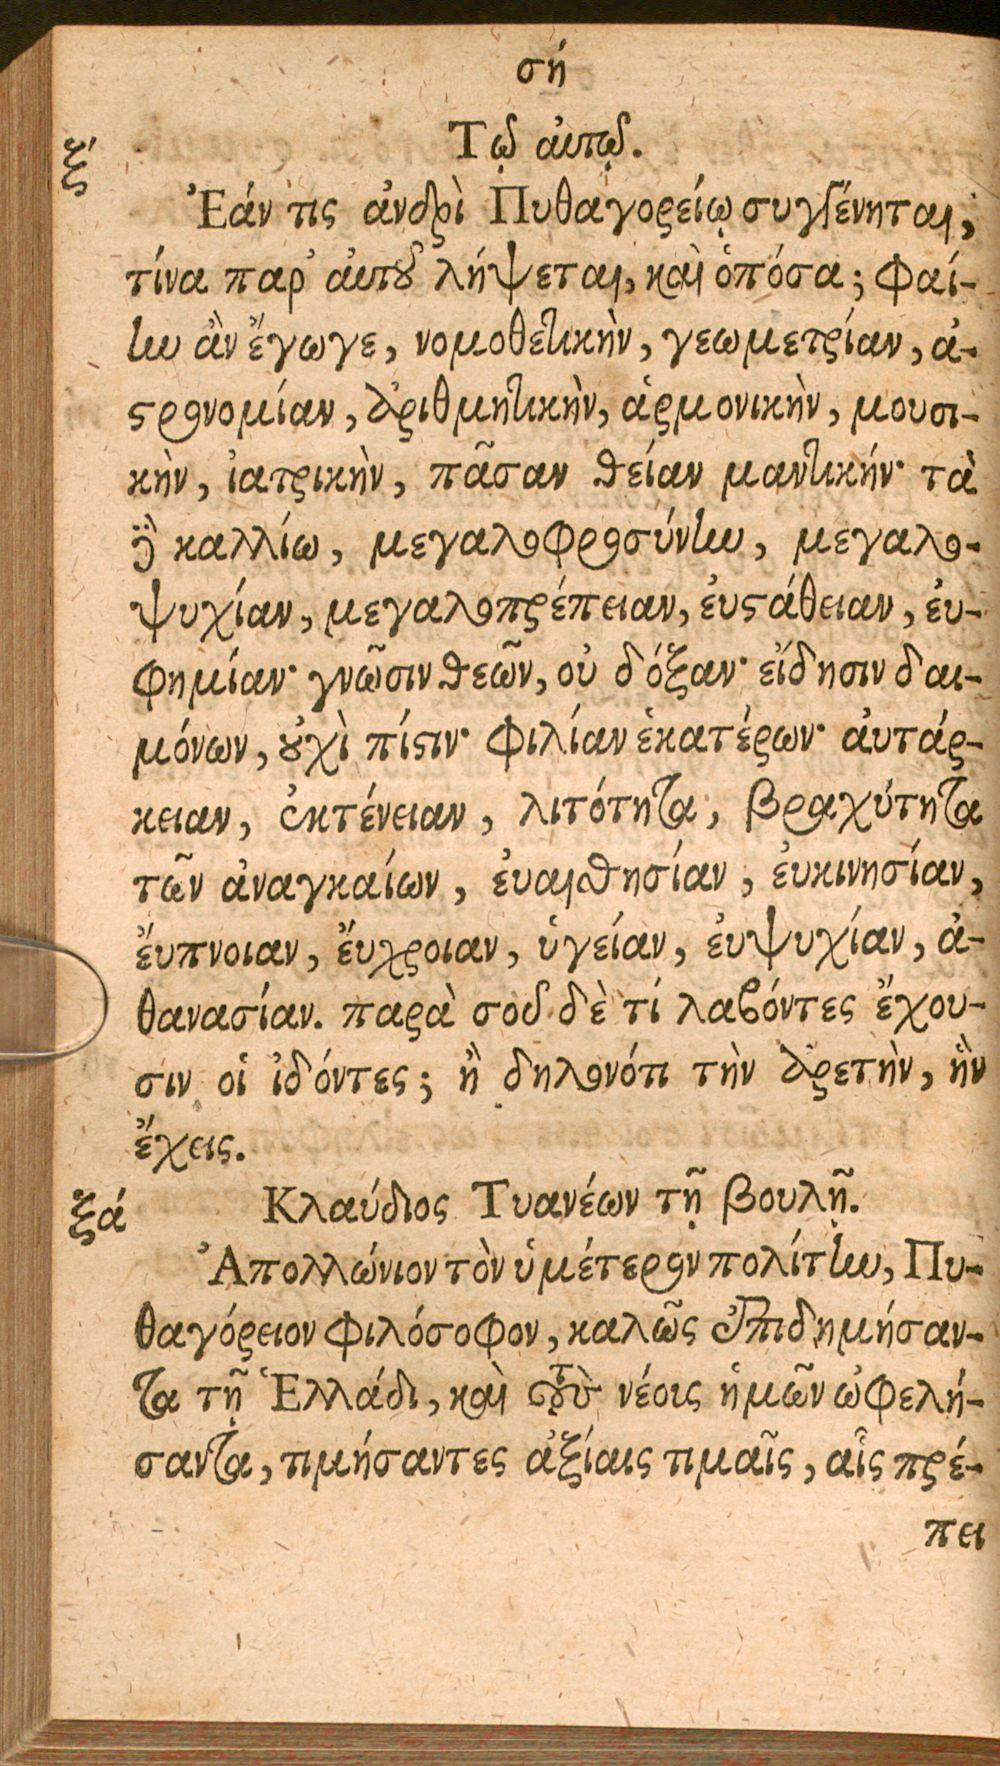 σή
Τῷ ἀυτῷ.
ξ́
Ἐάν τις ἀνδρὶ Πυθαγορείῳ συγγένηται,
τίνα παρ' ἀυτοῦ λήψεται, καὶ ὁπόσα; φαί-
ην ἂν ἔγωγε, νομοθετικὴν, γεωμετρίαν, ἀ-
στρονομίαν, ἀριθμητικὴν, ἁρμονικὴν, μουσι-
κὴν, ἰατρικὴν, πᾶσαν θείαν μαντικήν· τὰ
δὲ καλλίω, μεγαλοφροσύνην, μεγαλο-
ψυχίαν, μεγαλοπρέπειαν, ἐυστάθειαν, ἐυ-
φημίαν· γνῶσιν θεῶν, οὐ δόξαν· εἴδησιν δαι-
μόνων, οὐχὶ πίστιν· φιλίαν ἑκατέρων· ἀυτάρ-
κειαν, ἐκτένειαν, λιτότητα, βραχύτητα
τῶν ἀναγκαίων, ἐυαισθησίαν, ἐυκινησίαν,
ἔυπνοιαν, ἔυχροιαν, ὑγείαν, ἐυψυχίαν, ἀ-
θανασίαν. παρὰ σοῦ δὲ τί λαβόντες ἔχου-
σιν οἱ ἰδόντες; ἢ δηλονότι τὴν ἀρετὴν, ἣν
ἔχεις.
ξά
Κλαύδιος Τυανέων τῇ βουλῇ.
Ἀπολλώνιον τὸν ὑμέτερον πολίτην, Πυ-
θαγόρειον φιλόσοφον, καλῶς ἐπιδημήσαν-
τα τῇ Ἑλλάδι, καὶ τοὺς νέους ἡμῶν ὠφελή-
σαντα, τιμήσαντες ἀξίαις τιμαῖς, αἷς πρέ-
πει